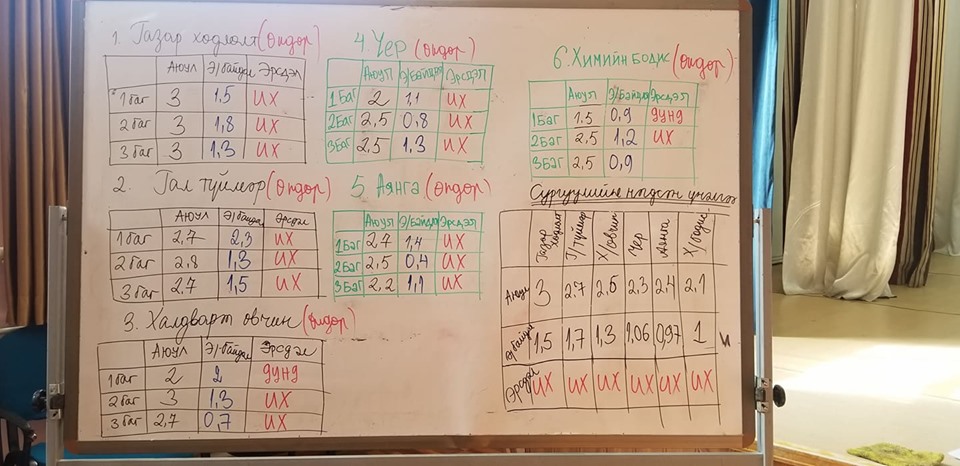 1. Газар хөдлөлт (өндөр)
Аюул Э/байдал Эрсдэл
1 баг 3 1,5 ИХ
2 баг 3 1,8 ИХ
3 баг 3 1,3 ИХ
2. Гал түймэр (өндөр)
Аюул Э/байдал Эрсдэл
1 баг 2,7 2,3 ИХ
2 баг 2,8 1,3 ИХ
3 баг 2,7 1,5 ИХ
3. Халдварт өвчин (өндөр)
Аюул Э/байдал Эрсдэл
1 баг 2 2 дунд
2 баг 3 1,3 ИХ
3 баг 2,7 0,7 ИХ
4. Үер (өндөр)
Аюул Э/байдал Эрсдэл
1 баг 2 1,1 ИХ
2 баг 2,5 0,8 ИХ
3 баг 2,5 1,3 ИХ
5. Аянга (өндөр)
Аюул Э/байдал Эрсдэл
1 баг 2,7 1,4 ИХ
2 баг 2,5 0,4 ИХ
3 баг 2,2 1,1 ИХ
6. Химийн бодис (өндөр)
Аюул Э/байдал Эрсдэл
1 баг 1.5 0,9 дунд
2 баг 2,5 1,2 ИХ
3 баг 2,5 0,9
Сургуулийн нэгдсэн үнэлгээ
Газар хөдлөлт Г/түймэр Х/өвчин Үер Аянга Х/бодис
Аюул 3 2,7 2,5 2,3 2,4 2,1
Э/байдал 1,5 1,7 1,3 1,06 0,97 1 и
Эрсдэл ИХ ИХ ИХ ИХ ИХ ИХ